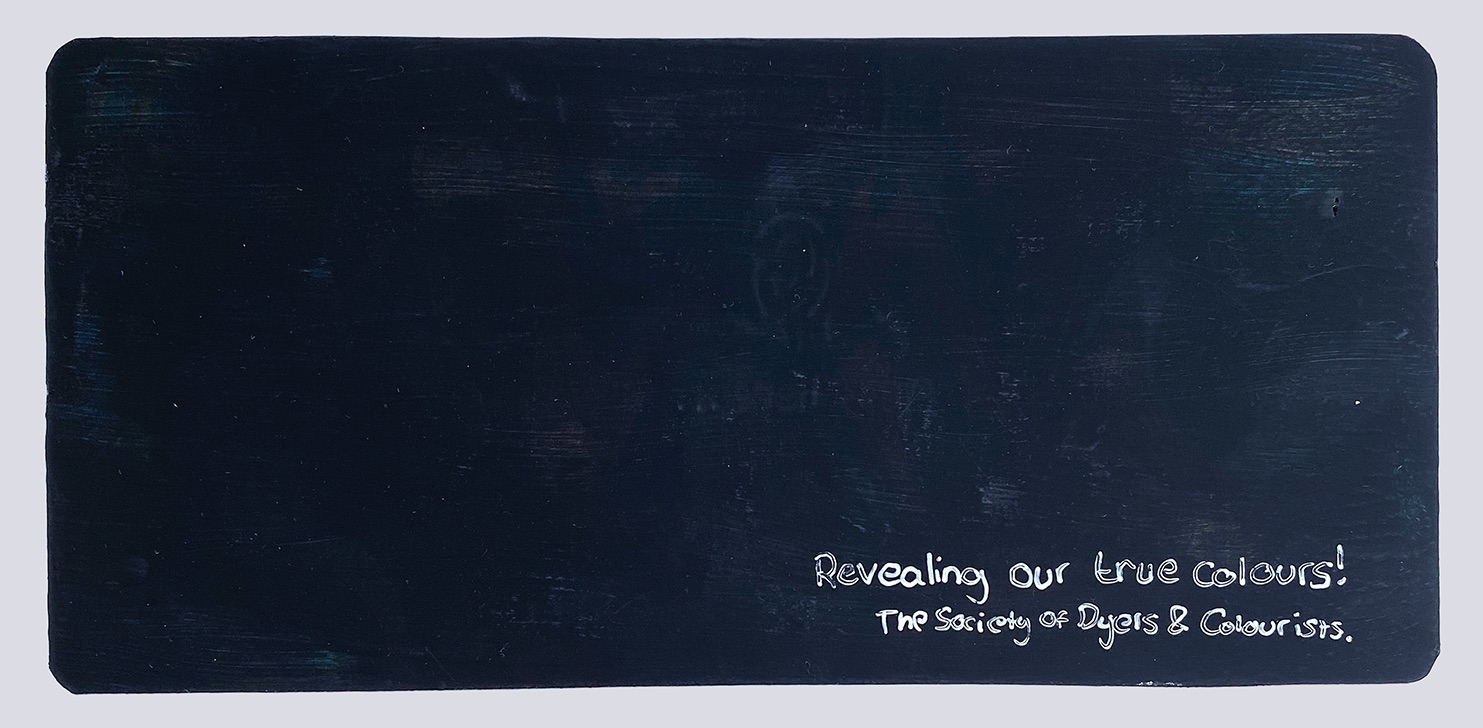 Revealing our true colours!
The Society of Dyers & Colourists.